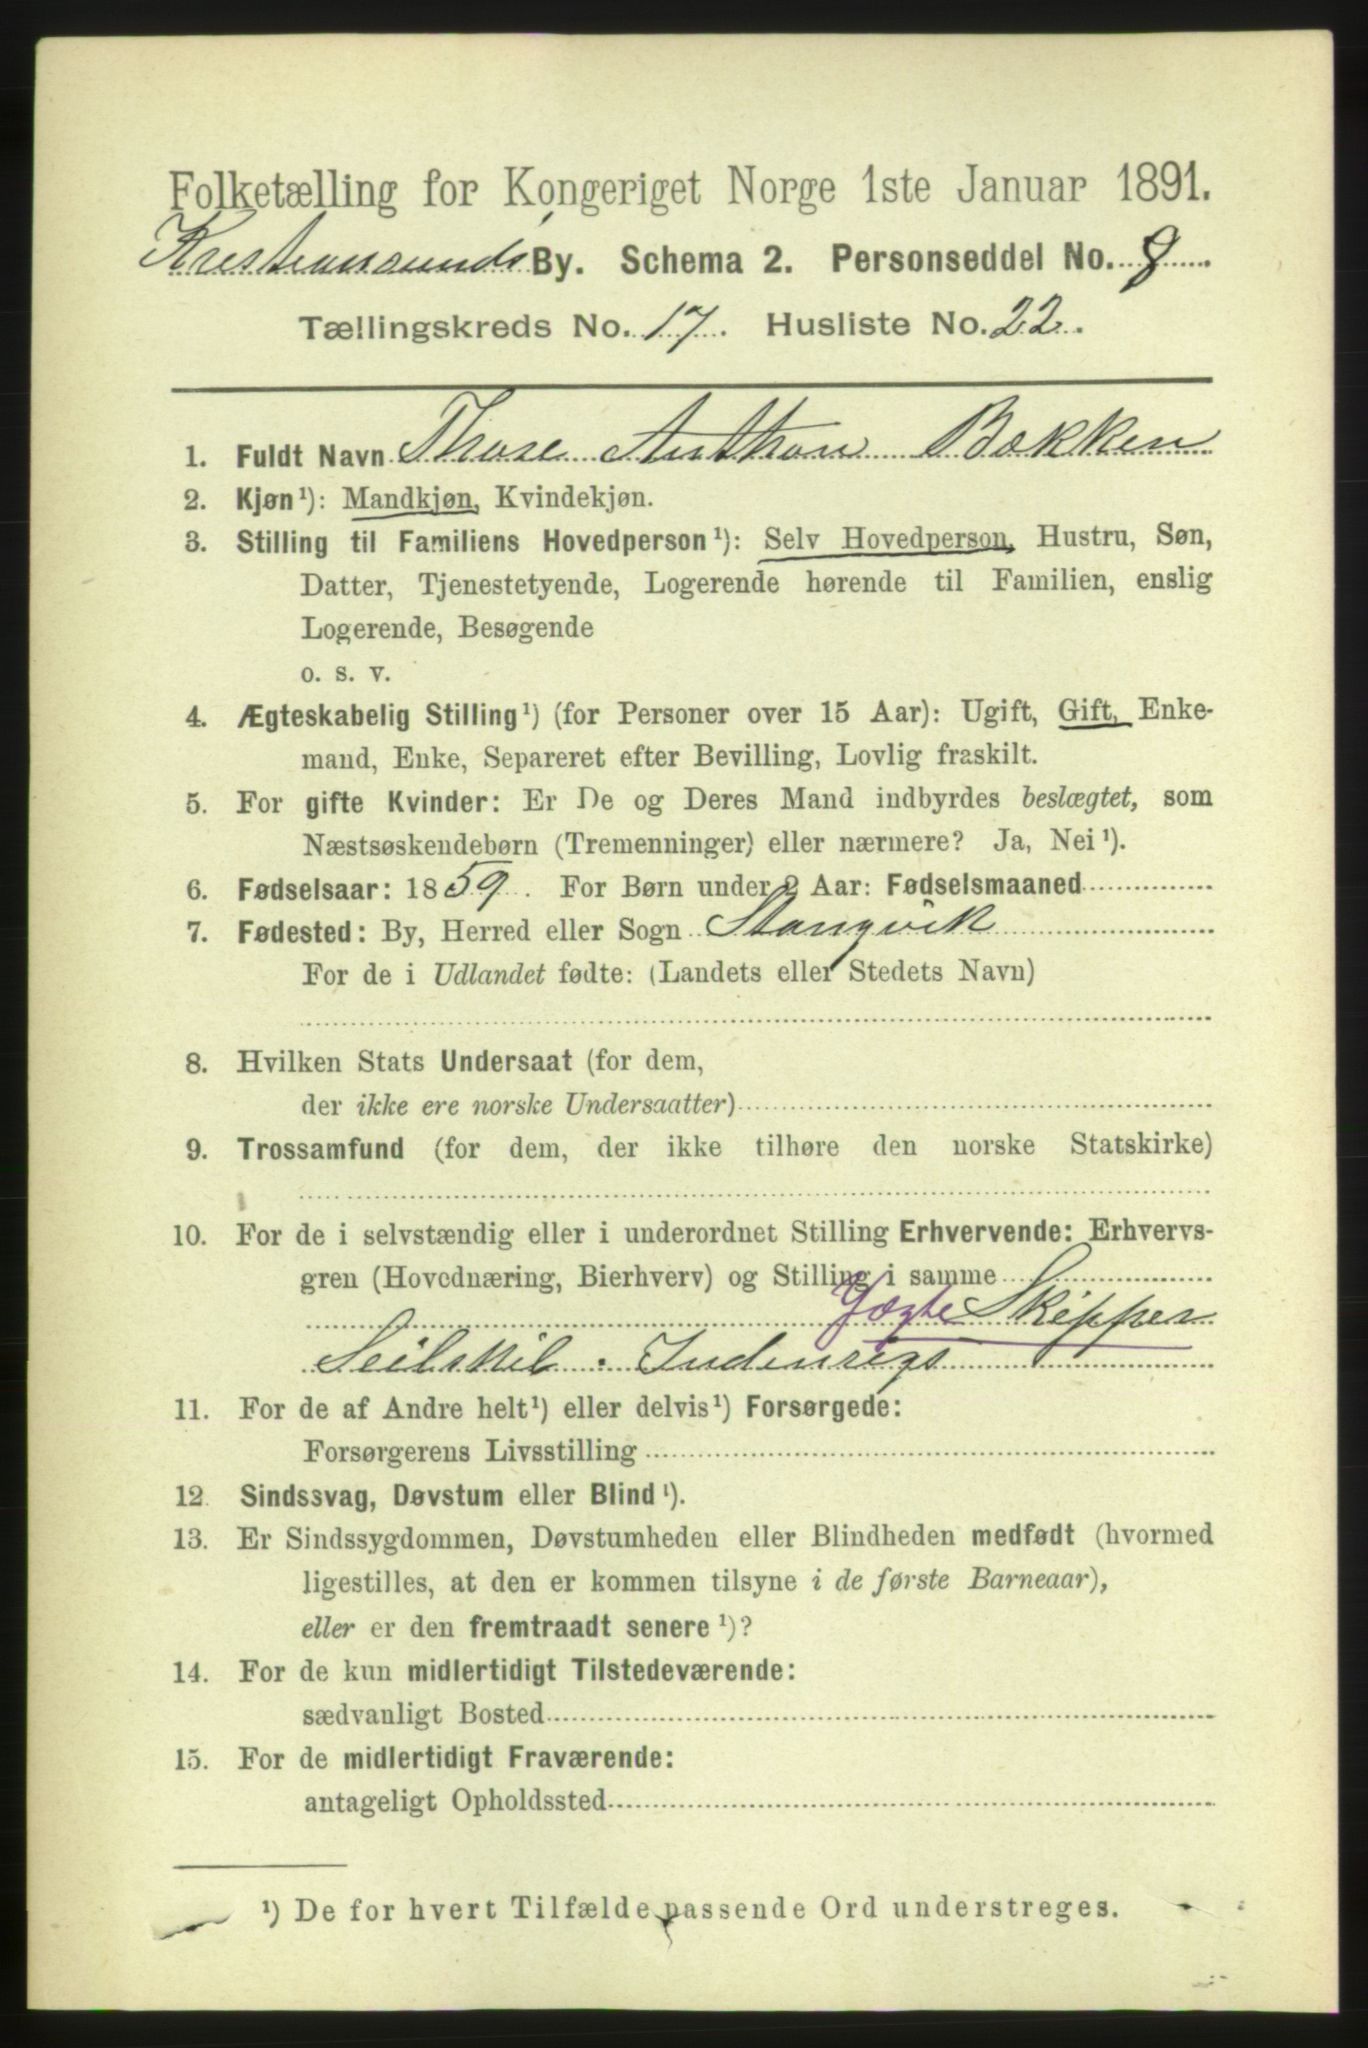 Folketælling for Kongeriget Norge 1ste Januar 1891.
Kristianssunds By. Schema 2. Personseddel No. 8
Tællingskreds No. 17. Husliste No. 22.
1. Fuldt Navn Thore Anthon Bækken
2. Kjøn¹): Mandkjøn, Kvindekjøn.
3. Stilling til Familiens Hovedperson¹): Selv Hovedperson, Hustru, Søn,
Datter, Tjenestetyende, Logerende hørende til Familien, enslig
Logerende, Besøgende
o. s. v.
4. Ægteskabelig Stilling¹) (for Personer over 15 Aar): Ugift, Gift, Enke-
mand, Enke, Separeret efter Bevilling, Lovlig fraskilt.
5. For gifte Kvinder: Er De og Deres Mand indbyrdes beslægtet, som
Næstsøskendebørn (Tremenninger) eller nærmere? Ja, Nei¹).
6. Fødselsaar: 1859. For Børn under 2 Aar: Fødselsmaaned
7. Fødested: By, Herred eller Sogn Stangvik
For de i Udlandet fødte: (Landets eller Stedets Navn)
8. Hvilken Stats Undersaat (for dem,
der ikke ere norske Undersaatter)
9. Trossamfund (for dem, der ikke tilhøre den norske Statskirke)
10. For de i selvstændig eller i underordnet Stilling Erhvervende: Erhvervs-
gren (Hovednæring, Bierhverv) og Stilling i samme
Jægte Skipper
Seilskib. Indenrigs
11. For de af Andre helt¹) eller delvis¹) Forsørgede:
Forsørgerens Livsstilling
12. Sindssvag, Døvstum eller Blind¹).
13. Er Sindssygdommen, Døvstumheden eller Blindheden medfødt (hvormed
ligestilles, at den er kommen tilsyne i de første Barneaar),
eller er den fremtraadt senere¹)?
14. For de kun midlertidigt Tilstedeværende:
sædvanligt Bosted
15. For de midlertidigt Fraværende:
antageligt Opholdssted
¹) De for hvert Tilfælde passende Ord understreges.